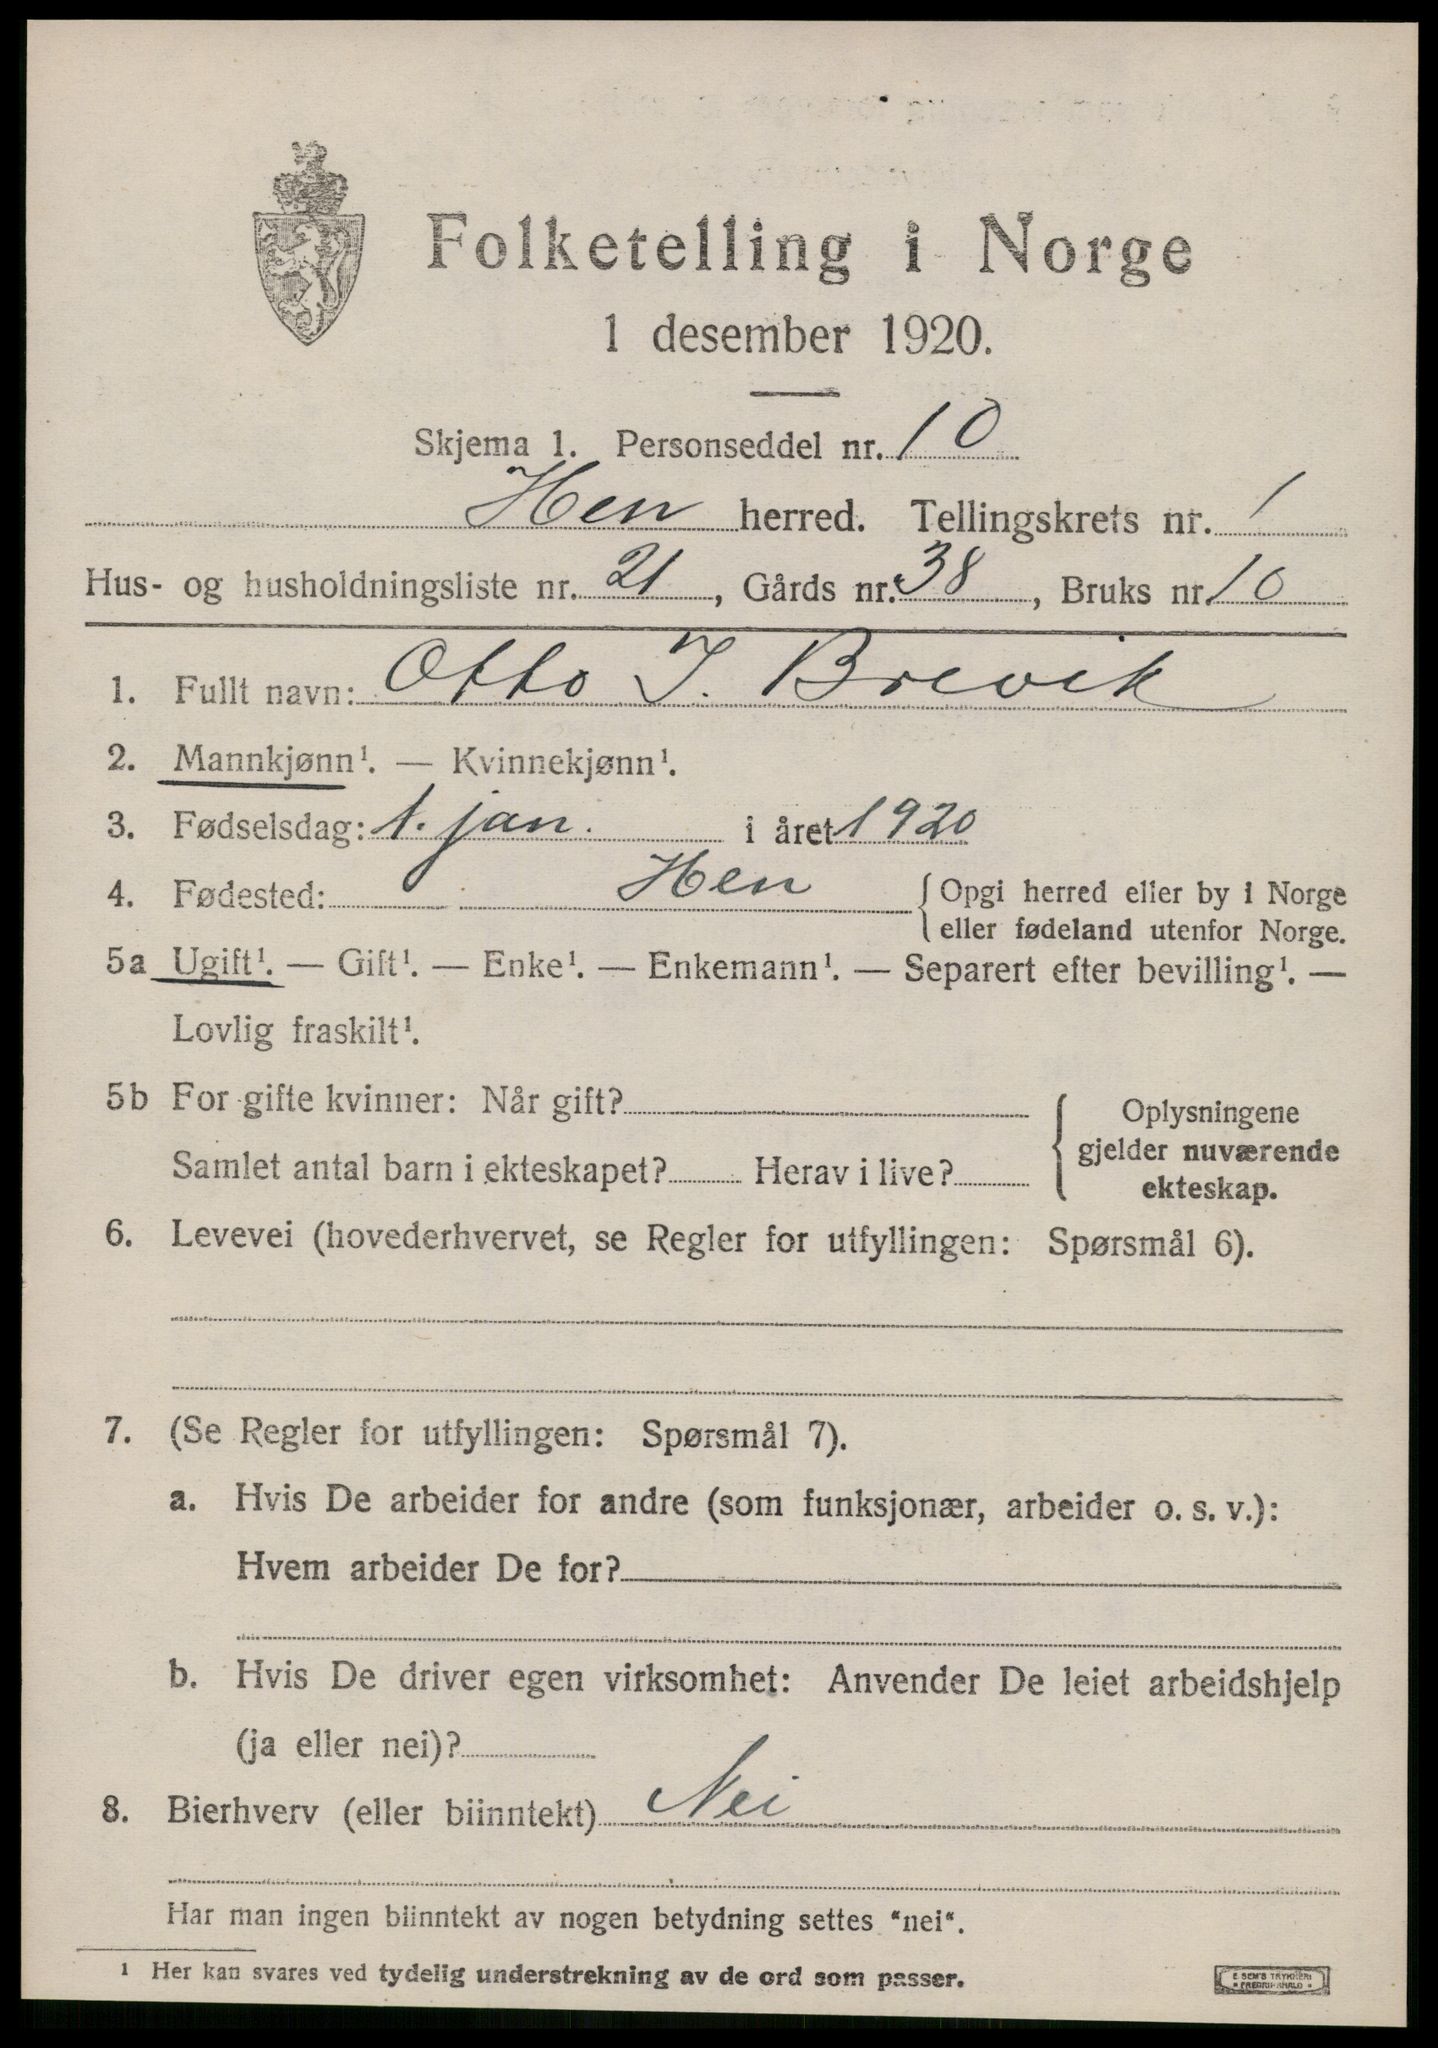 Folketelling i Norge
1 desember 1920.
Skjema 1. Personseddel nr. 10
Hen herred. Tellingskrets nr. 1
Hus- og husholdningsliste nr. 21, Gårds nr. 38, Bruks nr. 10
1. Fullt navn: Otto I. Brevik
2. Mannkjønn¹. — Kvinnekjønn¹.
3. Fødselsdag: 1. jan. i året 1920
4. Fødested: Hen {Opgi herred eller by i Norge
eller fødeland utenfor Norge.
5a Ugift¹. — Gift¹. — Enke¹. — Enkemann¹. — Separert efter bevilling¹. —
Lovlig fraskilt¹.
5b For gifte kvinner: Når gift? { Oplysningene
gjelder nuværende
Samlet antal barn i ekteskapet? Herav i live?
ekteskap.
6. Levevei (hovederhvervet, se Regler for utfyllingen: Spørsmål 6).
7. (Se Regler for utfyllingen: Spørsmål 7).
a. Hvis De arbeider for andre (som funksjonær, arbeider o. s. v.):
Hvem arbeider De for?
b. Hvis De driver egen virksomhet: Anvender De leiet arbeidshjelp
(ja eller nei)?
8. Bierhverv (eller biinntekt) Nei
Har man ingen biinntekt av nogen betydning settes "nei".
¹ Her kan svares ved tydelig understrekning av de ord som passer.
E. SEM'S TRYKKERI